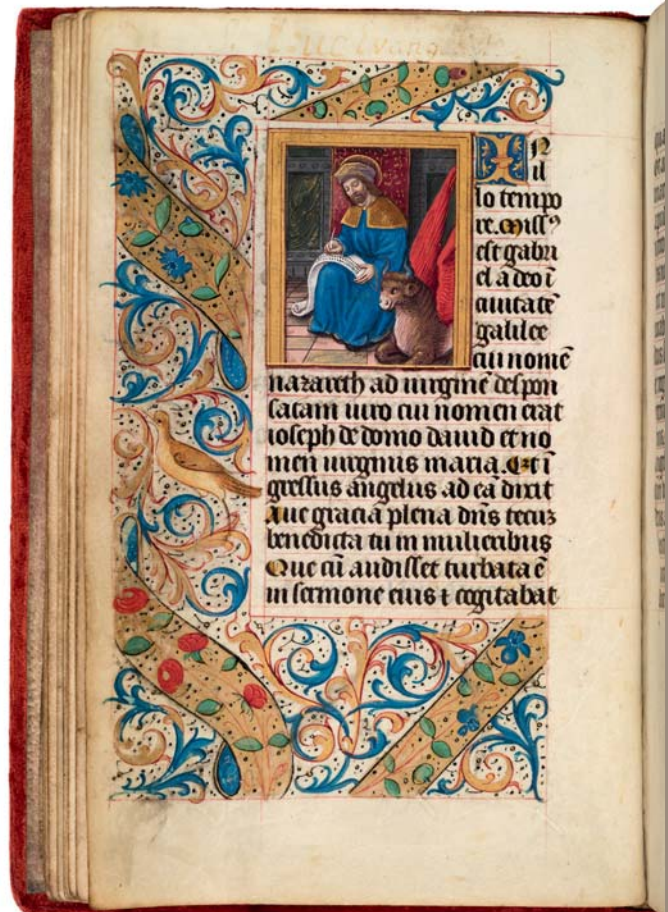 In
il
lo tempo
re. Missꝰ
est gabri
el a deo ī
ciuitatē
galilee
cui nomē
nazareth ad uirginē despon
satam uiro cui nomen erat
ioseph de domo dauid et no
men uirginis maria. Et ī
gressus angelus ad eā dixit
Aue gracia plena dn̄s tecuz
benedicta tu in mulieribus
Que cū audisset turbata ē
in sermone eius ⁊ cogitabat